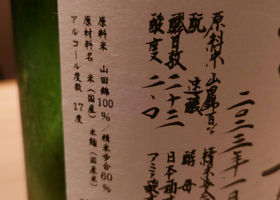 二〇二三年一月
原料米 山田錦百% 精米歩合
酛 速醸 酵母
醪日数 二十三 日本酒
酸度 二.〇 アミノ酸
原料米 山田錦100%/精米歩合60%
原材料名 米(国産) 米麹(国産米)
アルコール度数 17度